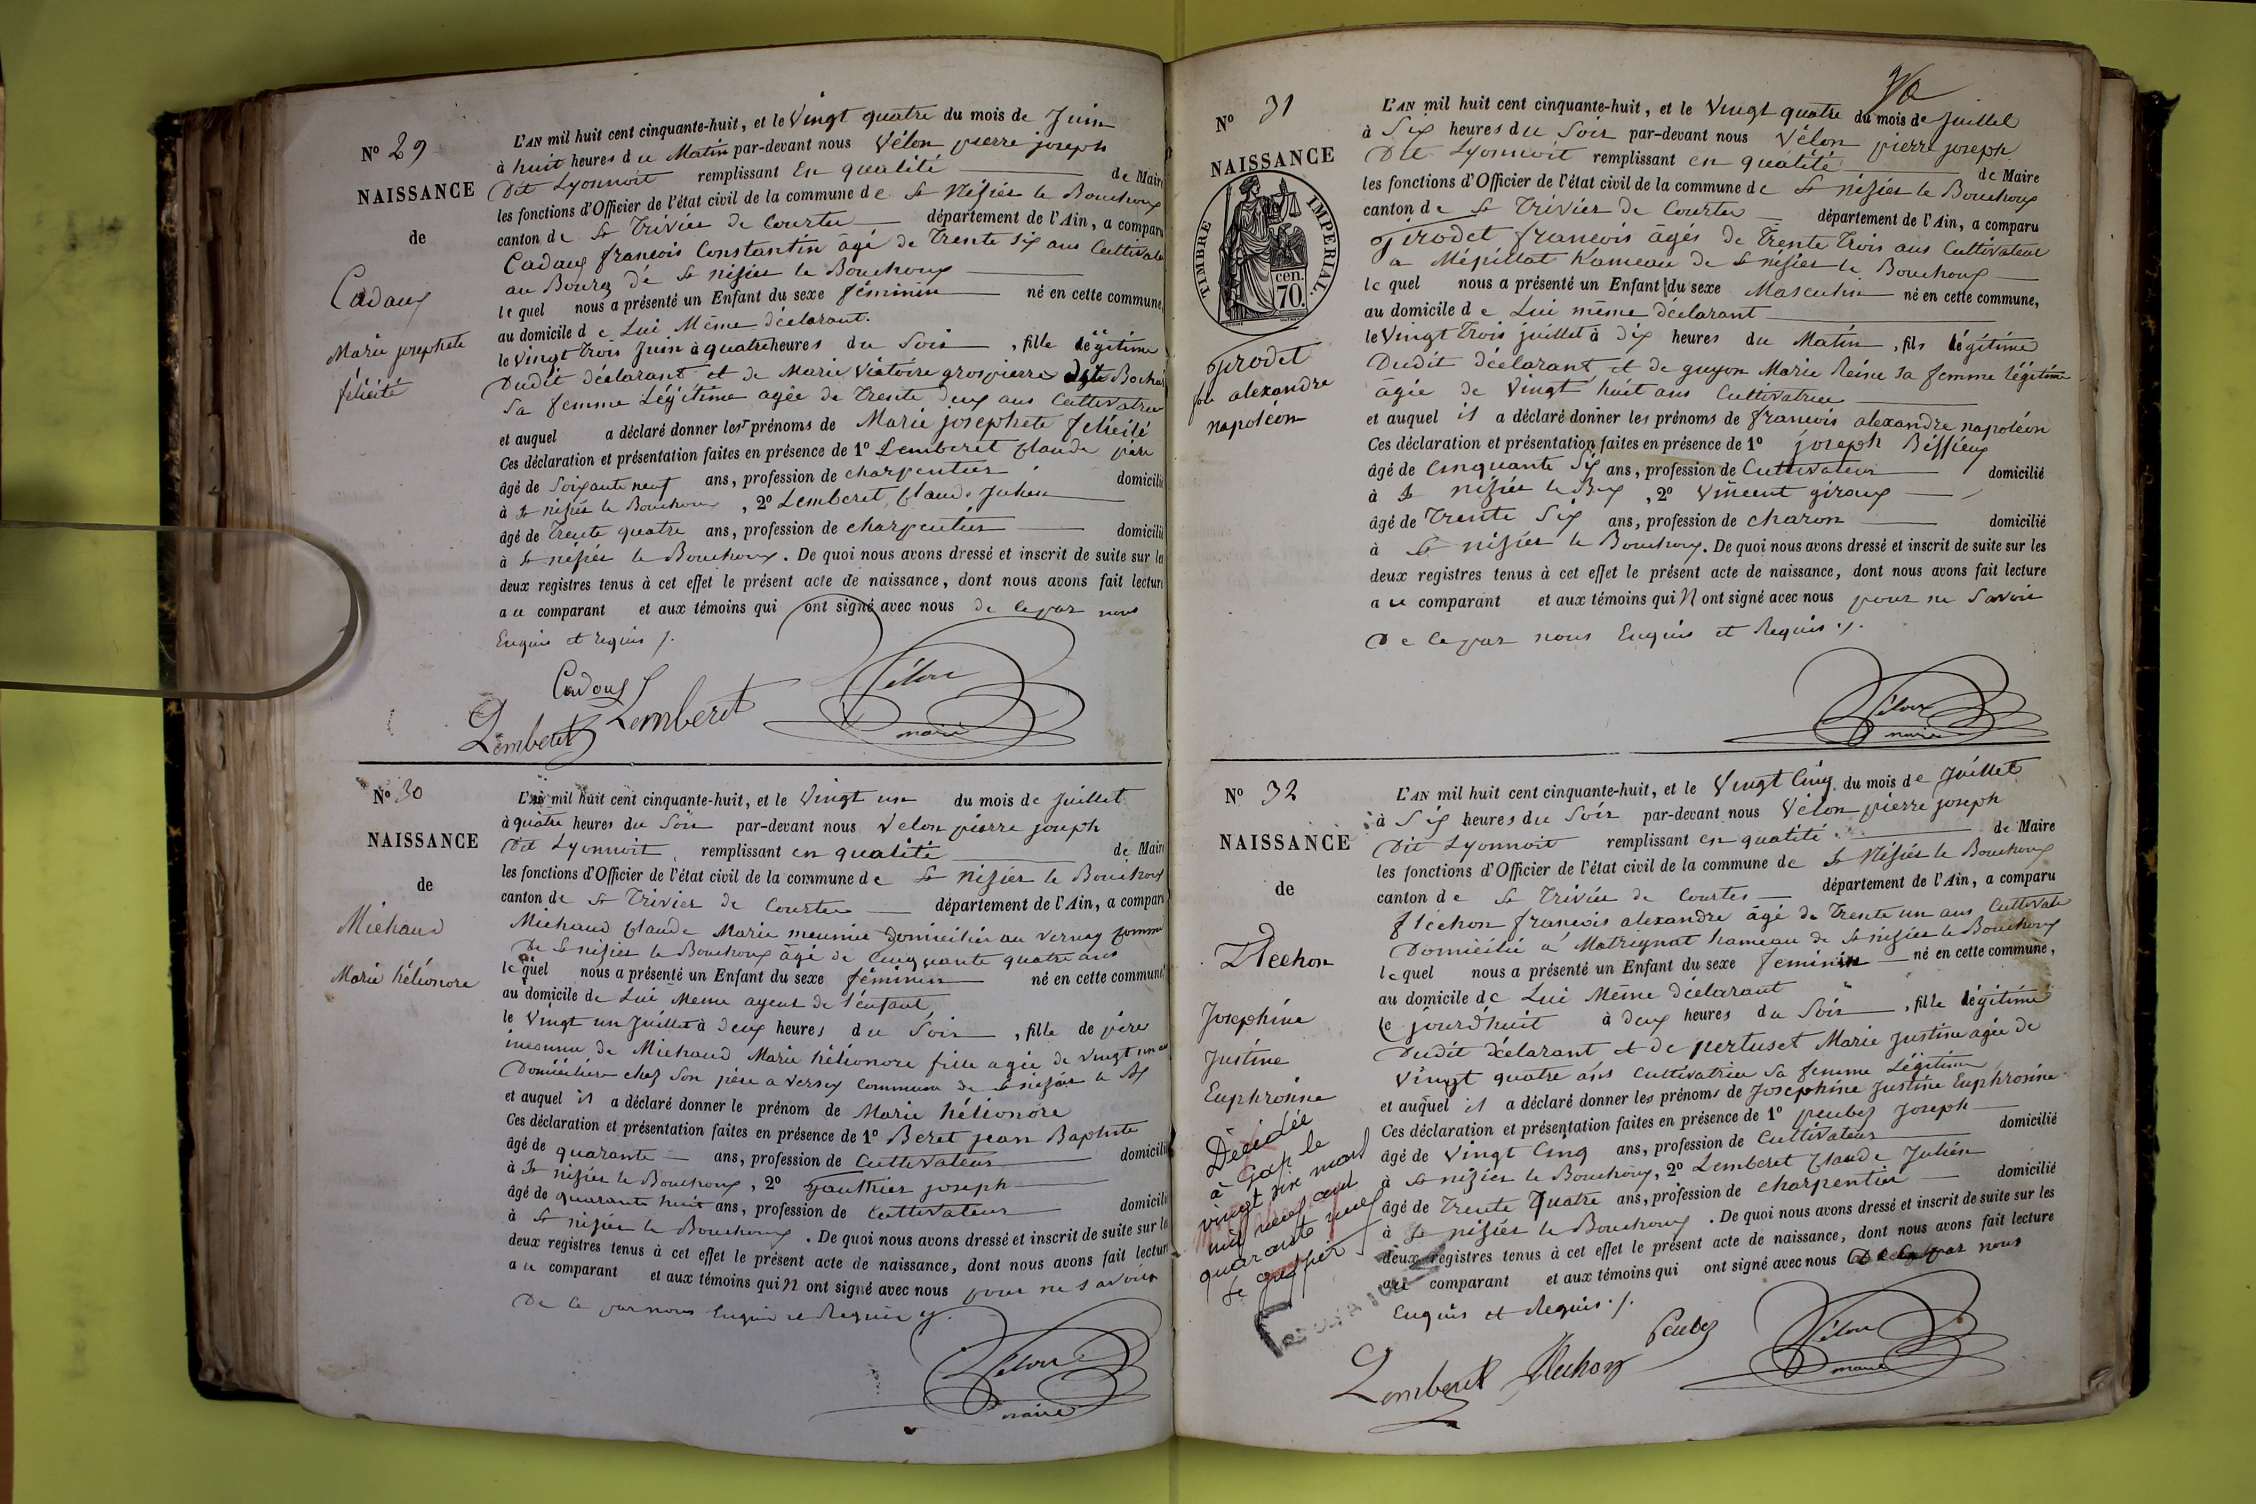 N° 29
NAISSANCE
de
Cadoux
Marie josephete
félicité
L'AN mil huit cent cinquante-huit, et le Vingt quatre du mois de Juin
à huit heures du Matin par-devant nous Vélon pierre joseph
Dit Lyonnoit remplissant En qualité de Maire
les fonctions d'Officier de l'état civil de la commune de St Nizier le Bouchoux
canton de St Trivier de Courtes département de l'Ain, a comparu
Cadoux francois Constantin âgé de Trente six ans Cultivate
au Bourg de St nizier le Bouchoux
lequel nous a présenté un Enfant du sexe féminin né en cette commune,
au domicile de Lui Même déclarant.
le Vingt Trois Juin à quatre heures du Soir, fille légitime
Dudit déclarant et de Marie Victoire grospierre dite Bochar
Sa femme Légitime agée de Trente deux ans Cultivatrice
et auquel a déclaré donner les prénoms de Marie josephete félicité
Ces déclaration et présentation faites en présence de 1° Lemberet Claude père
âgé de Soixante neuf ans, profession de charpentier domicilié
à St nizier le Bouchoux, 2° Lemberet Claude Julien
âgé de Trente quatre ans, profession de charpentier domicilié
à St nizier le Bouchoux. De quoi nous avons dressé et inscrit de suite sur les
deux registres tenus à cet effet le présent acte de naissance, dont nous avons fait lecture
au comparant et aux témoins qui ont signé avec nous de ce par nous
Enquis et requis ./.
Cadoux
Lemberet Lemberet Vélon
maire
N° 30
NAISSANCE
de
Michaud
Marie hélionore
L'AN mil huit cent cinquante-huit, et le Vingt un du mois de Juillet
à quatre heures du Soir par-devant nous Velon pierre joseph
Dit Lyonnoit remplissant en qualité de Maire
les fonctions d'Officier de l'état civil de la commune de St Nizier le Bouchoux
canton de St Trivier de Courtes département de l'Ain, a comparu
Michaud Claude Marie meunier Domicilié au Vernay Comme
De St nizier le Bouchoux âgé de Cinquante quatre ans
lequel nous a présenté un Enfant du sexe féminin né en cette commune
au domicile de Lui Meme ayeut de l'enfant
le Vingt un Juillet à deux heures du Soir, fille de père
inconnu de Michaud Marie hélionore fille agée de Vingt un an
Domiciliée chez Son père a Commune de St nizier le Bx
et auquel il a déclaré donner le prénom de Marie hélionore
Ces déclaration et présentation faites en présence de 1° Beret jean Baptiste
âgé de quarante ans, profession de Cultivateur domicilié
à St nizier le Bouchoux, 2° gauthier joseph
âgé de quarante huit ans, profession de Cultivateur domicilié
à St nizier le Bouchoux. De quoi nous avons dressé et inscrit de suite sur les
deux registres tenus à cet effet le présent acte de naissance, dont nous avons fait lecture
au comparant et aux témoins qui N ont signé avec nous pour ne savoir
De ce par nous Enquis et Requis ./.
Vélon
maire
N° 31
NAISSANCE
TIMBRE IMPÉRIAL.
cen.
70.
Girodet
alexandre
napoléon
L'AN mil huit cent cinquante-huit, et le Vingt quatre du mois de Juillet
à Six heures du Soir par-devant nous Vélon pierre joseph
Dit Lyonnoit remplissant en qualité de Maire
les fonctions d'Officier de l'état civil de la commune de St nizier le Bouchoux
canton de St Trivier de Courtes département de l'Ain, a comparu
Girodet francois âgés de Trente Trois ans Cultivateur
a Mépillat hameau de St nizier le Bouchoux
lequel nous a présenté un Enfant du sexe Masculin né en cette commune,
au domicile de Lui même déclarant
le Vingt Trois juillet à dix heures du Matin, fils légitime
Dudit déclarant et de guyon Marie Reine sa femme légitime
âgée de Vingt huit ans Cultivatrice
et auquel il a déclaré donner les prénoms de francois alexandre napoléon
Ces déclaration et présentation faites en présence de 1° joseph Béssieux
âgé de Cinquante Six ans, profession de Cultivateur domicilié
à St nizier le Bx, 2° Vincent giroux
âgé de Trente Six ans, profession de charon domicilié
à St nizier le Bouchoux. De quoi nous avons dressé et inscrit de suite sur les
deux registres tenus à cet effet le présent acte de naissance, dont nous avons fait lecture
au comparant et aux témoins qui N ont signé avec nous pour ne Savoir
De ce par nous Enquis et Requis ./.
Vélon
maire
N° 32
NAISSANCE
de
Flechon
Josephine
Justine
Euphrosine
Décédée
à Gap le
vingt six mars
mil neuf cent
quarante neuf
Le greffier
L'AN mil huit cent cinquante-huit, et le Vingt Cinq du mois de Juillet
à Six heures du Soir par-devant nous Vélon pierre joseph
Dit Lyonnoit remplissant en qualité de Maire
les fonctions d'Officier de l'état civil de la commune de St Nizier le Bouchoux
canton de St Trivier de Courtes département de l'Ain, a comparu
flechon francois alexandre âgé de Trente un ans Cultivate
Domicilié a Matrignat hameau de St nizier le Bouchoux
lequel nous a présenté un Enfant du sexe féminin né en cette commune,
au domicile de Lui Même déclarant
le jourd'huit à deux heures du Soir, fille légitime
Dudit déclarant et de pertuset Marie Justine agée de
Vingt quatre ans Cultivatrice sa femme Légitime
et auquel il a déclaré donner les prénoms de Josephine Justine Euphrosine
Ces déclaration et présentation faites en présence de 1° peubez Joseph
âgé de Vingt Cinq ans, profession de Cultivateur domicilié
à St nizier le Bouchoux, 2° Lemberet Claude Julien
âgé de Trente Quatre ans, profession de charpentier domicilié
à St nizier le Bouchoux. De quoi nous avons dressé et inscrit de suite sur les
deux registres tenus à cet effet le présent acte de naissance, dont nous avons fait lecture
au comparant et aux témoins qui ont signé avec nous de ce par nous
Enquis et Requis ./.
Lemberet flechon Peubez Vélon
maire